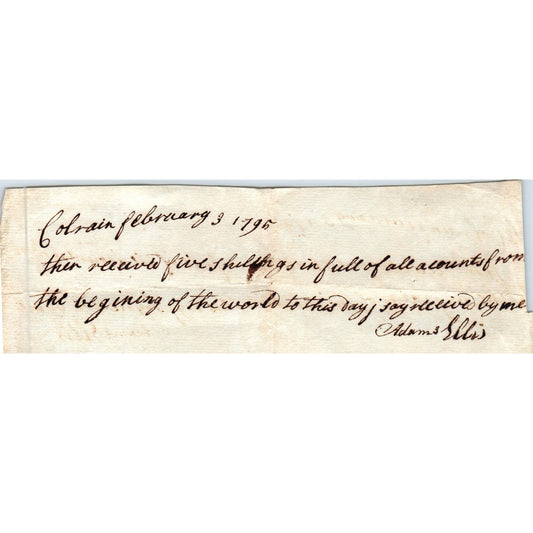 Colrain february 3 1795
then receivd five shillings in full of all acounts from
the begining of the world to this day j say receivd by me
Adams Ellis